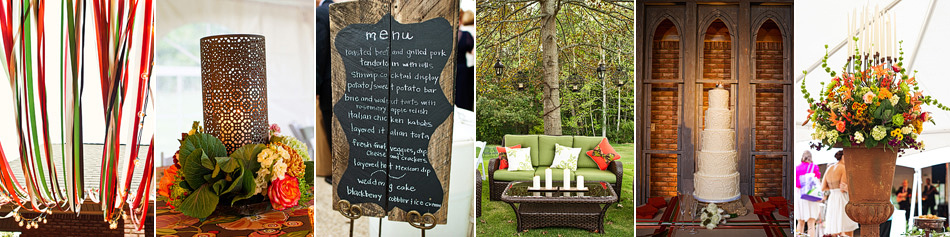 menu
roasted beef and grilled pork
tenderloin with rolls
shrimp cocktail display
potato/sweet potato bar
brie and walnut tarts with
rosemary apple relish
italian chicken kabobs
layered italian torta
fresh fruit, veggies, dip
cheese and crackers
layered hot Mexican dip
wedding cake
blackberry cobbler + ice cream